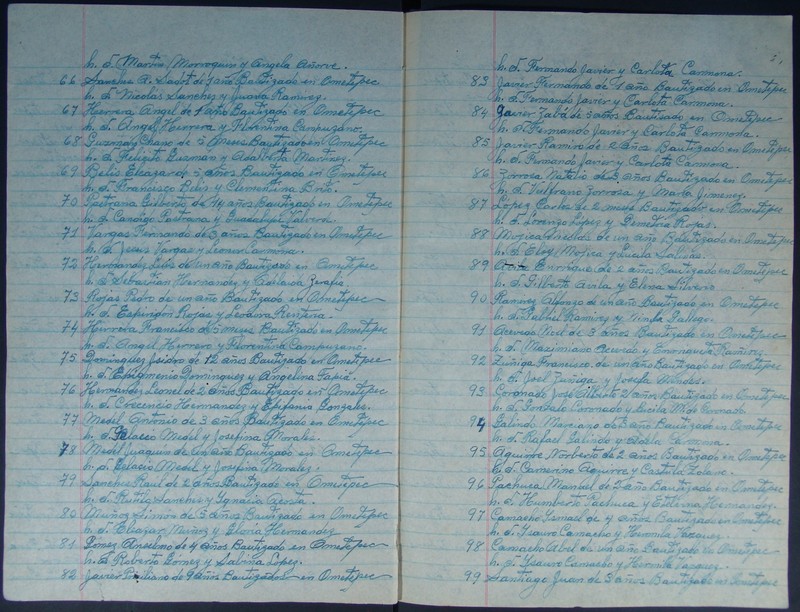 h. d. Martin Morroquin y Angela Añorve.
66 Sanchez R. Sadot de 1 año Bautizado en Ometepec
h. d. Nicolas Sanchez y Juana Ramirez.
67 Herrera Angel de 1 año Bautizado en Ometepec
h. d. Angel Herrera y Florentina Campuzano.
68 Guzman de 5 Meses Bautizado en Ometepec
h. d. Guzman y Martinez.
69 Belis Eleazar de 5 años Bautizado en Ometepec
h. d. Francisco Belis y Clementina
70 Pastrana Gilberto de años Bautizado en Ometepec
h. d. Pastrana y Guadalupe
71 Vargas Fernando de 3 años Bautizado en Ometepec
h. d. Jesus Vargas y Leonor Carmona.
72 Hernandez Luis de un año Bautizado en Ometepec
h. d. Sebastian Hernandez y Adelaida
73 Rojas Pedro de un año Bautizado en Ometepec
h. d. Rojas y
74 Herrera Francisco de 5 meses Bautizado en Ometepec
h. d. Angel Herrera y Florentina Campuzano.
75 Dominguez Isidro de 12 años Bautizado en Ometepec
h. d. Epigmenio Dominguez y Angelina Tapia.
76 Hernandez Leonel de 2 años Bautizado en Ometepec
h. d. Crecencio Hernandez y Epifania Gonzales.
77 Medel Antonio de 3 años Bautizado en Ometepec
h. d. Medel y Josefina Morales.
78 Medel Juaquin de un año Bautizado en Ometepec
h. d. Medel y Josefina Morales.
79 Sanches Raul de 2 años Bautizado en Ometepec
h. d. Sanches y Ygnacia Acosta.
80 Muñoz Simón de 5 años Bautizado en Ometepec
h. d. Eliazar Muñoz y Gloria Hernandez
81 Gomez Anselmo de 4 años Bautizado en Ometepec
h. d. Roberto Gomez y Sabina Lopez.
82 Javier de 9 años Bautizados en Ometepec
h. d. Fernando Javier y Carlota Carmona.
83 Javier Fernando de 7 año Bautizado en Ometepec
h. d. Fernando Javier y Carlota Carmona.
84 Javier de 5 años Bautizado en Ometepec
h. d. Fernando Javier y Carlota Carmona.
85 Javier Ramiro de 2 años Bautizado en Ometepec
h. d. Fernando Javier y Carlota Carmona.
86 Zorrosa Natalio de 3 años Bautizado en Ometepec
h. d. Zorrosa y Maria Jimenez.
87 Lopez Carlos de 2 meses Bautizado en Ometepec
h. d. Lorenzo López y Demetria Rojas.
88 Mojica de un año Bautizado en Ometepec
h. d. Eloy Mojica y Lucila
89 Enrrique de 2 años Bautizado en Ometepec
h. d. Gilberto Avila y Elena Silverio.
90 Ramirez de un año Bautizado en Ometepec
h. d. Ramirez y Gallego.
91 Acevedo de 3 años Bautizado en Ometepec
h. d. Maximiano Acevedo y Enrriqueta Ramirez.
92 Zúñiga Francisco de un año Bautizado en Ometepec
h. d. Joel Zuñiga y Josefa Mendes.
93 Coronado Jose Alberto 2 años Bautizado en Ometepec
h. d. Gonzalo Coronado y Lucila M. de Coronado.
94 Galindo Mariano de 3 años Bautizado en Ometepec
h. d. Rafael Galindo y Carmona.
95 Aguirre Norberto de 2 años Bautizado en Ometepec
h. d. Camerino Aguirre y Castula
96 Pachuca Manuel de 3 años Bautizado en Ometepec
h. d. Humberto Pachuca y Hernandez.
97 Camacho Ismael de 4 años Bautizado en Ometepec
h. d. Ysauro Camacho y Hermila Vasquez.
98 Camacho Abel de un año Bautizado en Ometepec
h. d. Ysauro Camacho y Hermila Vasquez.
99 Santiago Juan de 3 años Bautizado en Ometepec